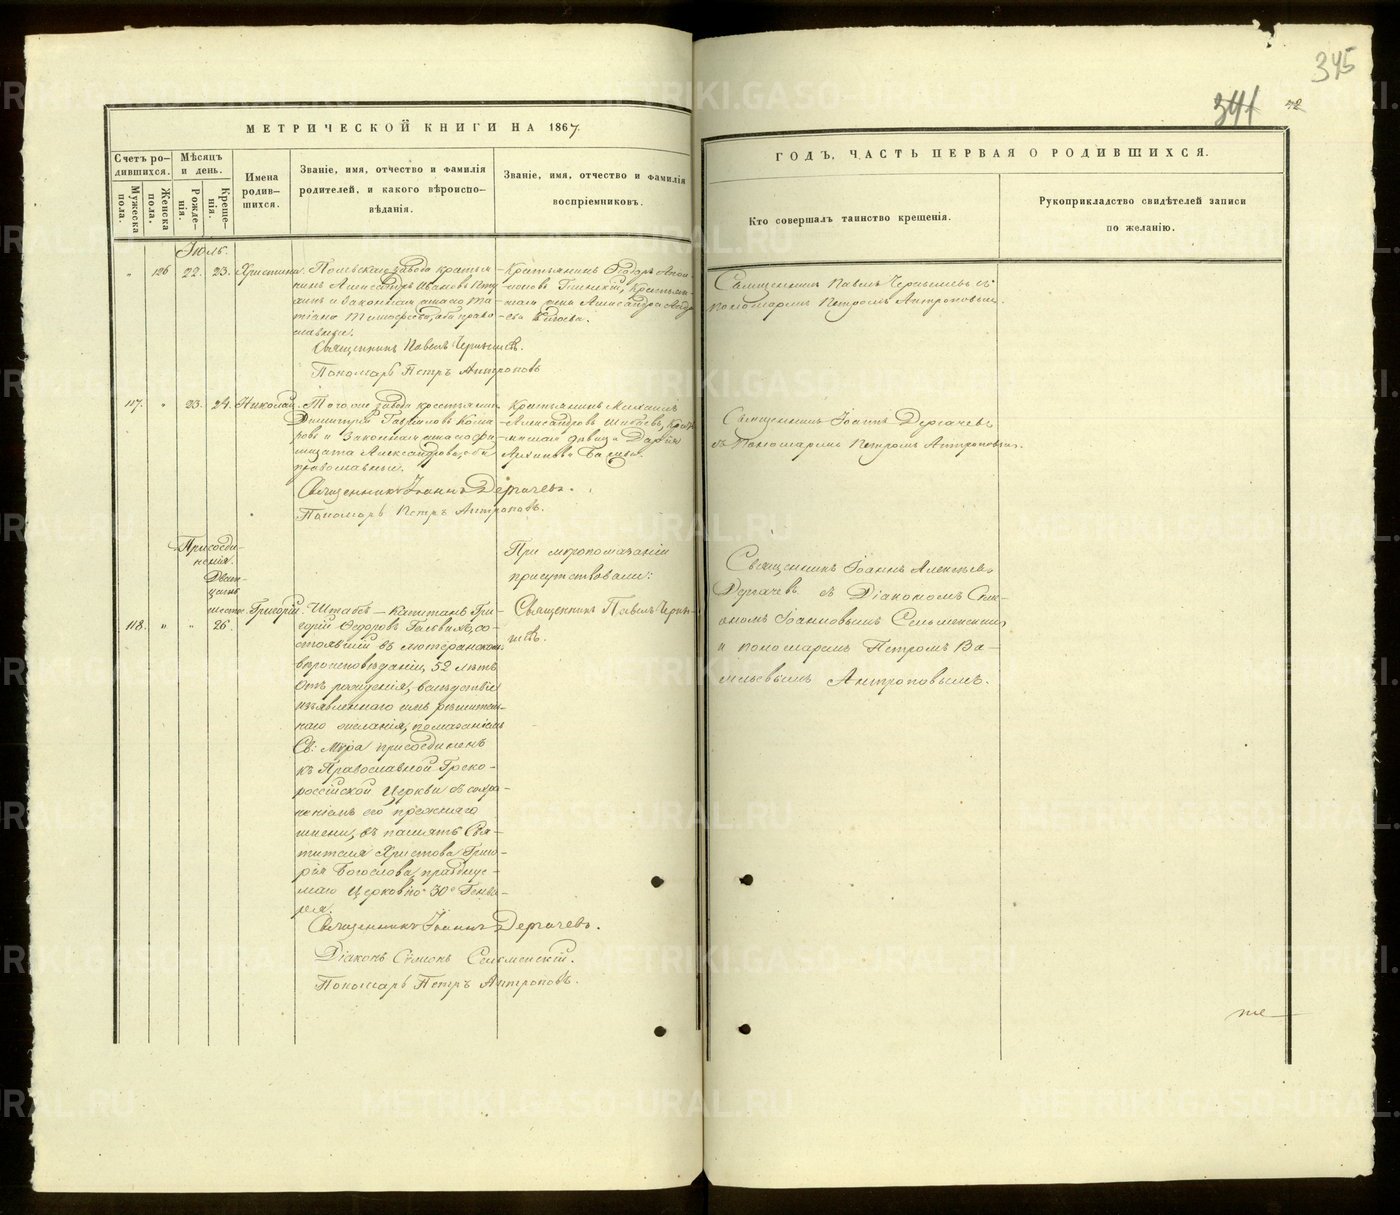 345
341 72
МЕТРИЧЕСКОЙ КНИГИ НА 1867.
ГОДЪ, ЧАСТЬ ПЕРВАЯ О РОДИВШИХСЯ.
Счетъ ро-
дившихся.
Мужеска
пола.
Женска
пола.
Мѣсяцъ
и день.
Рожде-
нія.
Креще-
нія.
Имена
родив-
шихся.
Званіе, имя, отчество и фамилія
родителей, и какого вѣроиспо-
вѣданія.
Званіе, имя, отчество и фамилія
воспріемниковъ.
Кто совершалъ таинство крещенія.
Рукоприкладство свидѣтелей записи
по желанію.
Іюль.
126 22. 23. Христина.
завода кресть
нинъ Александръ Ивановъ
и законная жена его Та-
тіана Тимофеева, оба право-
славные.
Священникъ Павелъ Чернышевъ.
Пономарь Петръ Антроповъ
Крестьянинъ Ѳедоръ
крестьян-
Александра
Священникъ Павелъ Чернышевъ съ
пономаремъ Петромъ Антроповымъ.
117. 23. 24. Николай.
Того же завода крестьянинъ
Димитрій Гавриловъ Кома-
ровъ и законная жена его
Александрова, оба
православные.
Священникъ Іоаннъ Дергачевъ.
Пономарь Петръ Антроповъ.
Крестьянинъ Михаилъ
Александровъ
дѣвица Дарья
Священникъ Іоаннъ Дергачевъ
съ Пономаремъ Петромъ Антроповымъ.
Присоеди-
ненія.
Двад-
цать
шестое
118. 26. Григорій.
Штабсъ-Капитанъ Гри-
горій Ѳедоровъ со-
стоявшій въ лютеранскомъ
вѣроисповѣданіи, 52 лѣтъ
отъ рожденія, вслѣдствіе
изъявленнаго имъ рѣшитель-
наго желанія, помазаніемъ
Св: Мѵра присоединенъ
къ Православной Греко-
россійской Церкви съ сохра-
неніемъ его прежняго
имени, въ память Свя-
тителя Христова Григо-
рія Богослова, празднуе-
маго Церковію 30е Генва-
ря.
Священникъ Іоаннъ Дергачевъ.
Діаконъ Симеонъ Сельменскій.
Пономарь Петръ Антроповъ.
При мѵропомазаніи
присутствовали:
Священникъ Павелъ Черны-
шевъ.
Священникъ Іоаннъ Алексѣевъ
Дергачевъ съ Діакономъ Сим-
ономъ Іоанновымъ Сельменскимъ
и пономаремъ Петромъ Ва-
сильевымъ Антроповымъ.
METRIKI.GASO-URAL.RU